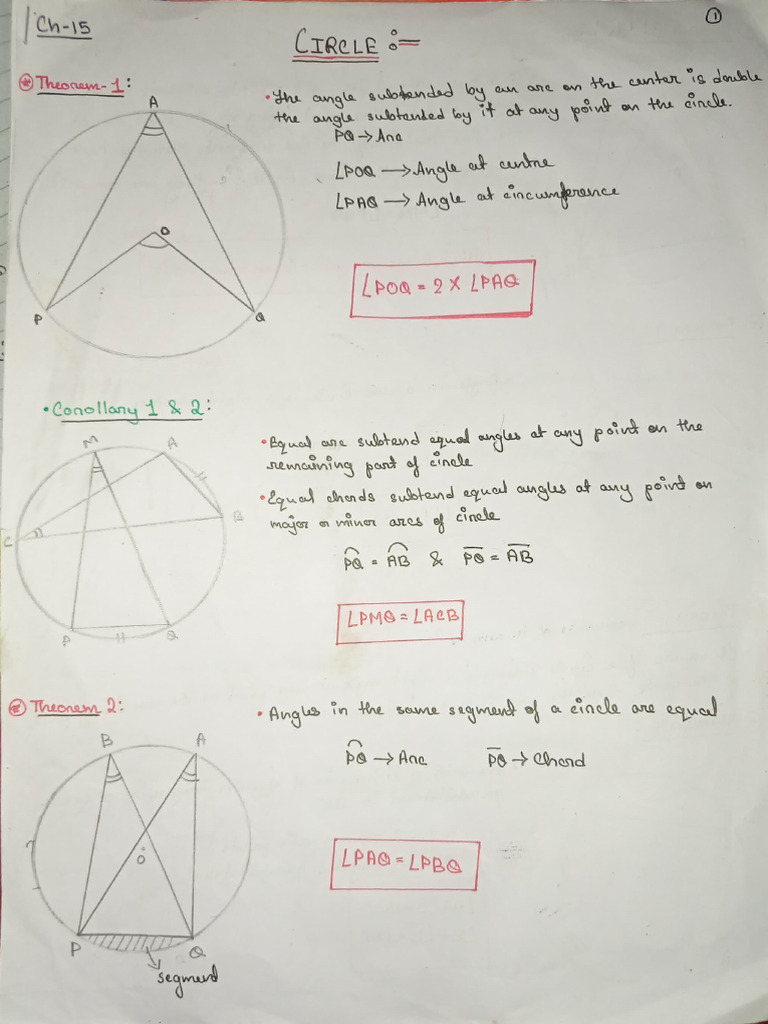 Ch-15
1
CIRCLE :=
Theorem-1:
• The angle subtended by an arc on the center is double
the angle subtended by it at any point on the circle.
PQ → Arc
∠POQ → Angle at centre
∠PAQ → Angle at circumference
∠POQ = 2 × ∠PAQ
A
O
P
Q
• Corollary 1 & 2:
• Equal arc subtend equal angles at any point on the
remaining part of circle
• Equal chords subtend equal angles at any point on
major or minor arcs of circle
P͡Q = A͡B & P̅Q̅ = A̅B̅
∠PMQ = ∠ACB
M
A
B
C
P
Q
Theorem 2:
• Angles in the same segment of a circle are equal
P͡Q → Arc P̅Q̅ → Chord
∠PAQ = ∠PBQ
B
A
O
P
Q
segment